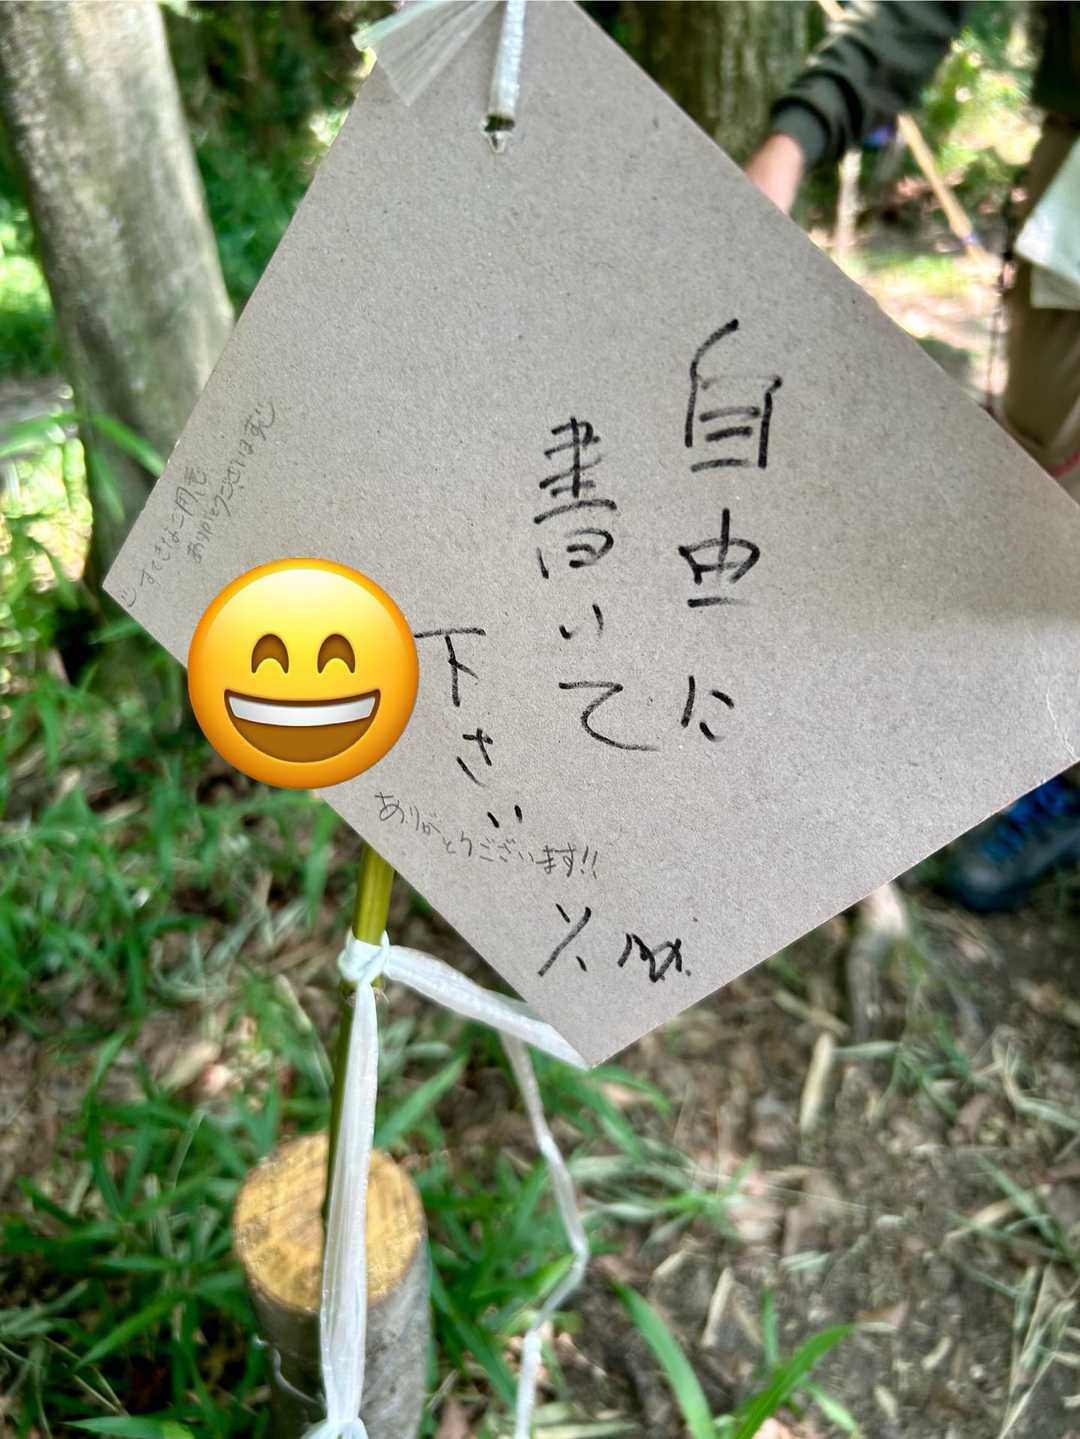 自由に
書いて
下さい
ありがとうございます!!
すてきなご用意
ありがとうございます